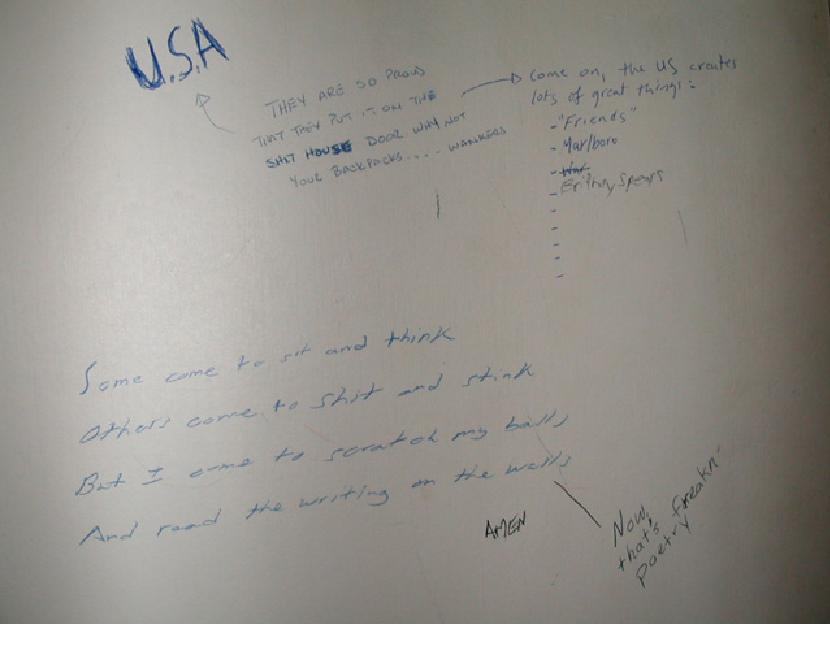 U.S.A
THEY ARE SO PROUD
THAT THEY PUT IT ON THE
SHIT HOUSE DOOR WHY NOT
YOUR BACKPACKS.... WANKERS
Come on, the US creates
lots of great things:
- "Friends"
- Marlboro
- War
Britney Spears
-
-
-
-
-
Some come to sit and think
Others come to shit and stink
But I come to scratch my balls
And read the writing on the walls
AMEN
Now,
that's freakn'
poetry